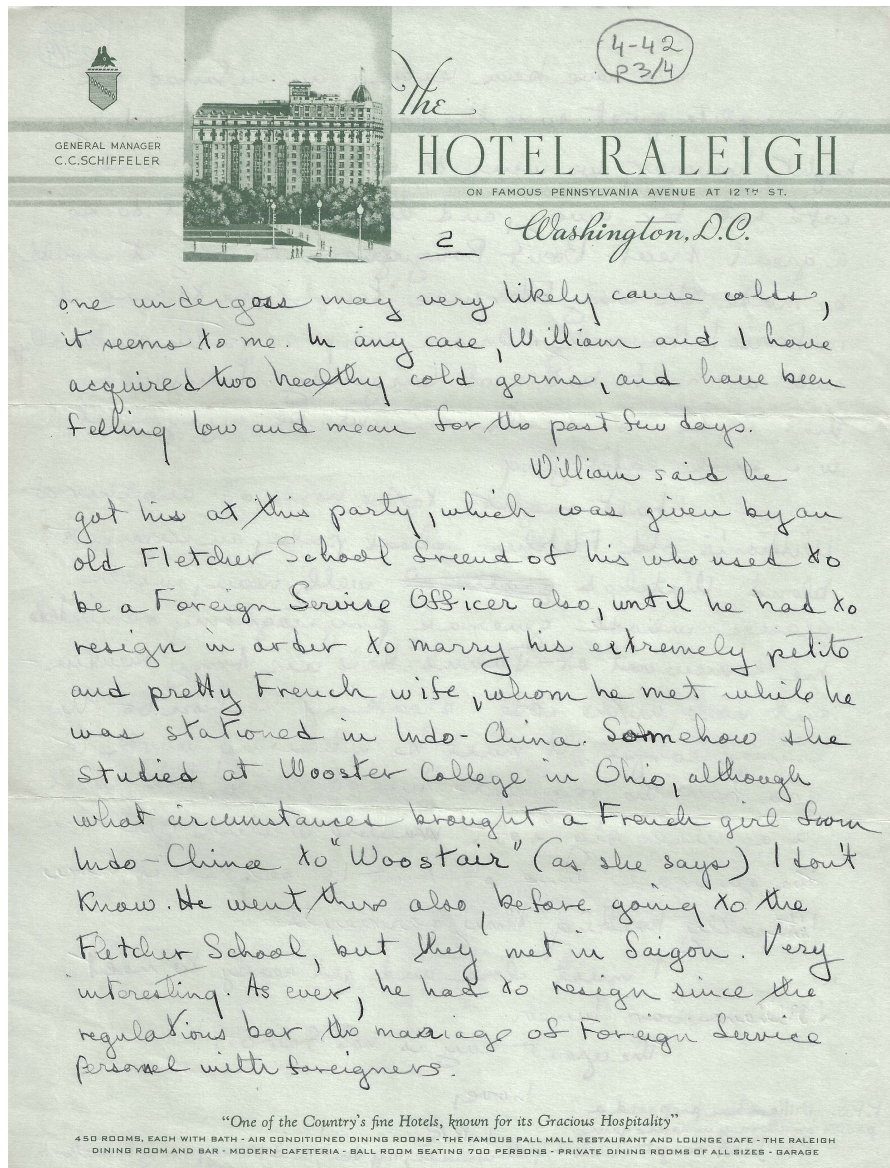 4-42
p3/4
The
HOTEL RALEIGH
GENERAL MANAGER
C.C. SCHIFFELER
ON FAMOUS PENNSYLVANIA AVENUE AT 12TH ST.
Washington, D.C.
2
one undergoes may very likely cause colds,
it seems to me. In any case, William and I have
acquired two healthy cold germs, and have been
felling low and mean for the past few days.
William said he
got his at this party, which was given by an
old Fletcher School friend of his who used to
be a Foreign Service Officer also, until he had to
resign in order to marry his extremely petite
and pretty French wife, whom he met while he
was stationed in Indo-China. Somehow she
studied at Wooster College in Ohio, although
what circumstances brought a French girl from
Indo-China to "Woostair" (as she says) I don't
know. He went there also, before going to the
Fletcher School, but they met in Saigon. Very
interesting. As ever, he had to resign since the
regulations bar the marriage of Foreign Service
Personel with foreigners.
"One of the Country's fine Hotels, known for its Gracious Hospitality"
450 ROOMS, EACH WITH BATH - AIR CONDITIONED DINING ROOMS - THE FAMOUS PALL MALL RESTAURANT AND LOUNGE CAFE - THE RALEIGH
DINING ROOM AND BAR - MODERN CAFETERIA - BALL ROOM SEATING 700 PERSONS - PRIVATE DINING ROOMS OF ALL SIZES - GARAGE